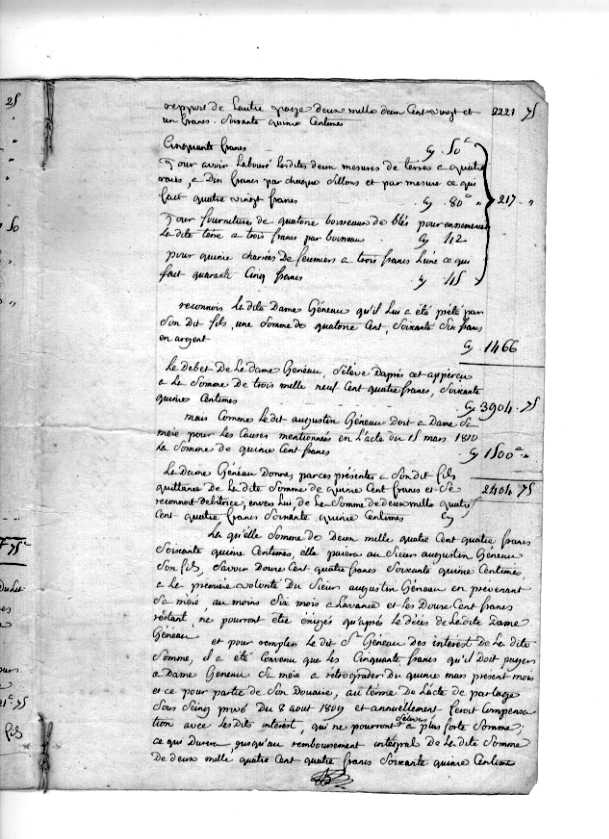 25
report de l'autre page deux mille deux Cent vingt et 2221 75
un francs Soixante quinze Centimes
Cinquante francs 50
Pour avoir Labouré lesdites deux mesures de terres a quatre
raies, a Dix francs par chaque Sillons et par mesure ce qui
fait quatre vingt francs 80 217
Pour fourniture de quatorze boisseaux de blés pour ensemencer
La dite terre a trois francs par boisseau 42
pour quinze charrées de feumiers a trois francs L'une ce qui
fait quarante Cinq francs 45
50
reconnois Ladite Dame Géneau qu'il Lui a été prêté par
Son Dit fils, une Somme de quatorze Cent, Soixante Six francs
en argent 1466
Le Debet De La dame Geneau, S'élève D'après cet apperçu
a La Somme De trois mille neuf Cent quatre francs, Soixante
quinze Centimes 3904 75
mais Comme Ledit augustin Géneau doit a Dame Sa
mère pour Les Causes mentionnées en L'acte du 15 mars 1810
La Somme de quinze Cent francs 1500
La Dame Géneau Donne, par ces présentes a Son dit fils 2404 75
quittance de La dite Somme de quinze Cent francs et Se
reconnoit debitrice, envers Lui, de La Somme de deux mille quatre
Cent quatre francs Soixante quinze Centimes
75
La qu'elle Somme de Deux mille quatre Cent quatre francs
Soixante quinze Centimes, elle paiera au Sieur augustin Géneau
Son fils, Savoir Douze Cent quatre francs Soixante quinze Centimes
a La première volonté Du Sieur augustin Géneau en prevenant
Sa mère, au moins Six mois a L'avance et Les Douze Cent francs
restant, ne pourront être éxigés qu'après Le décès de Ladite Dame
Géneau et pour remplir Le dit Sr Géneau Des intérêt De La dite
Somme, il a été Convenu que Les Cinquante francs qu'il Doit payer
a Dame Geneau Sa mère a rétrograder Du quinze mars présent mois
et ce pour partie de Son Douaire, au terme De L'acte de partage
Sous Seing privé du 8 aout 1809 et annuellement feront Compensa
fils
tion avec Lesdits intérêt, qui ne pourront a plus forte Somme,
ce qui Durera jusqu'au remboursement intégral De La dite Somme
De deux mille quatre Cent quatre francs Soixante quinze Centime